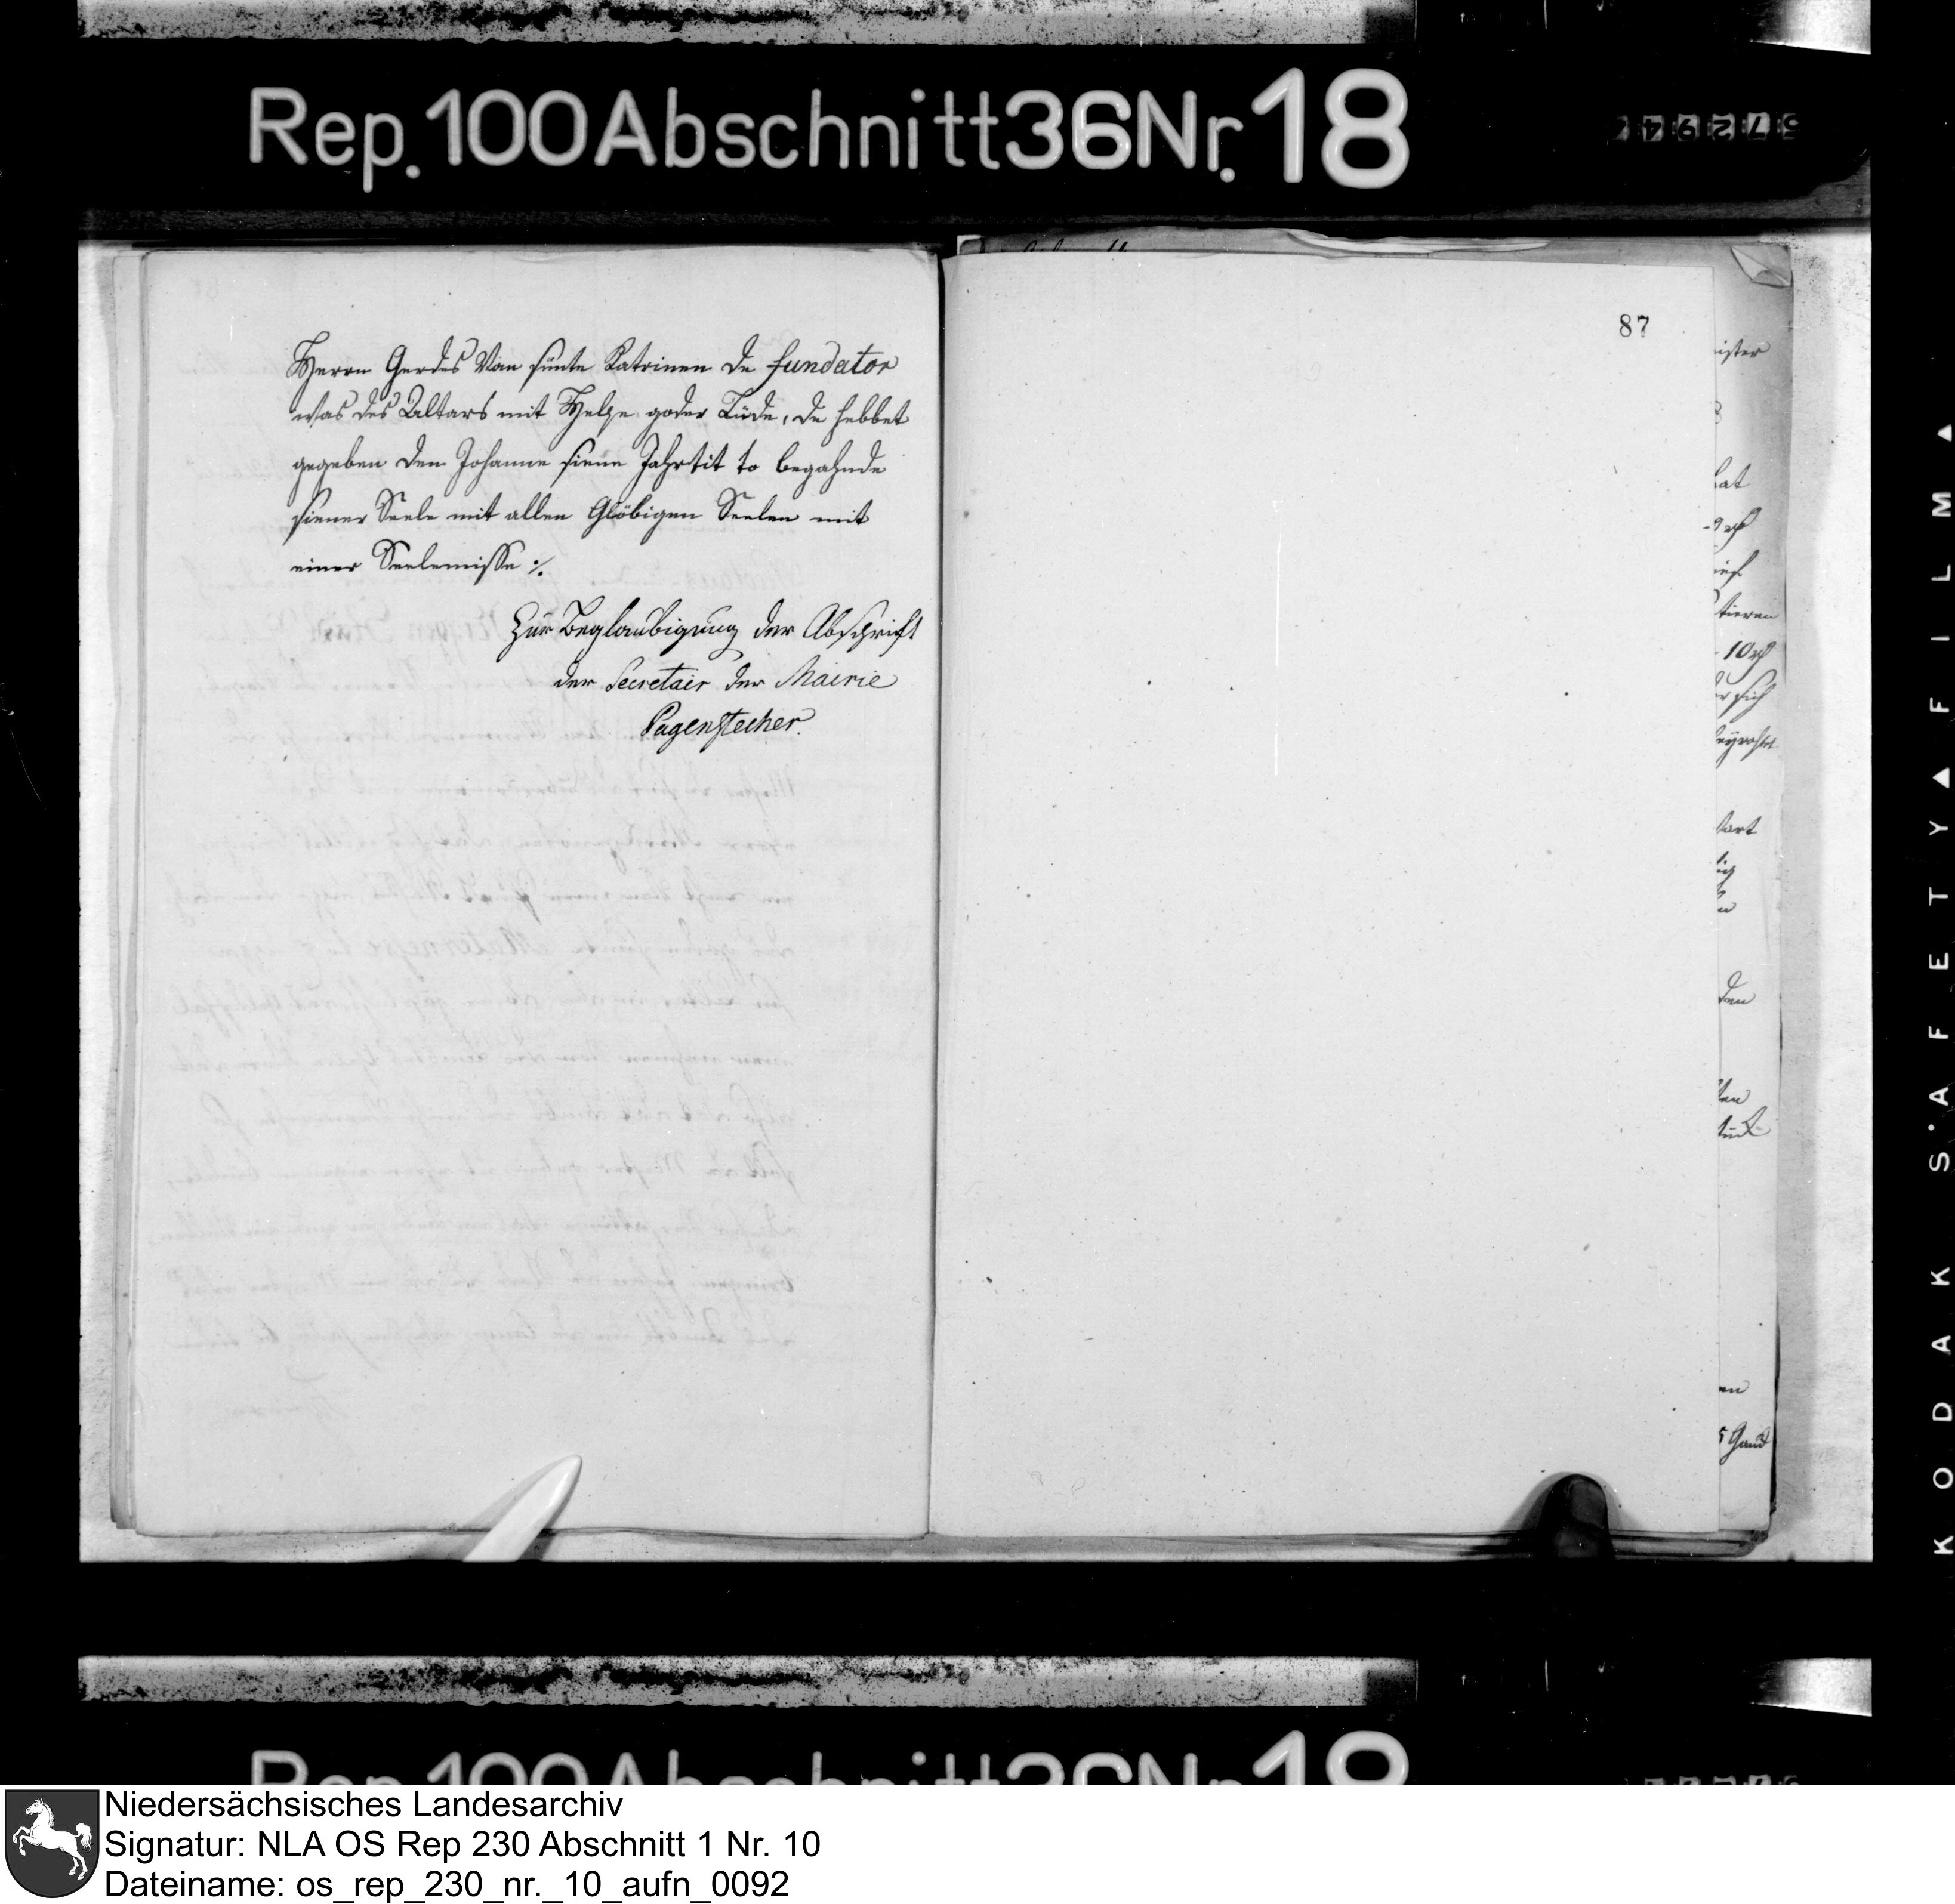 Rep. 100 Abschnitt 36 Nr. 18
Herrn Gerdes Van sünte Katrinen de fundator
was des Altars mit Helpe goder Lüde, de hebbet
gegeben den Johanne siene Jahrtit to begahnde
siener Seele mit allen Glöbigen Seelen mit
einer Seelemisse ./.
Zur Beglaubigung der Abschrift
der Secretair der Mairie
Pagenstecher.
87
ister
hat
tieren
sich
den
KODAK SAFETY FILM
Niedersächsisches Landesarchiv
Signatur: NLA OS Rep 230 Abschnitt 1 Nr. 10
Dateiname: os_rep_230_nr._10_aufn_0092